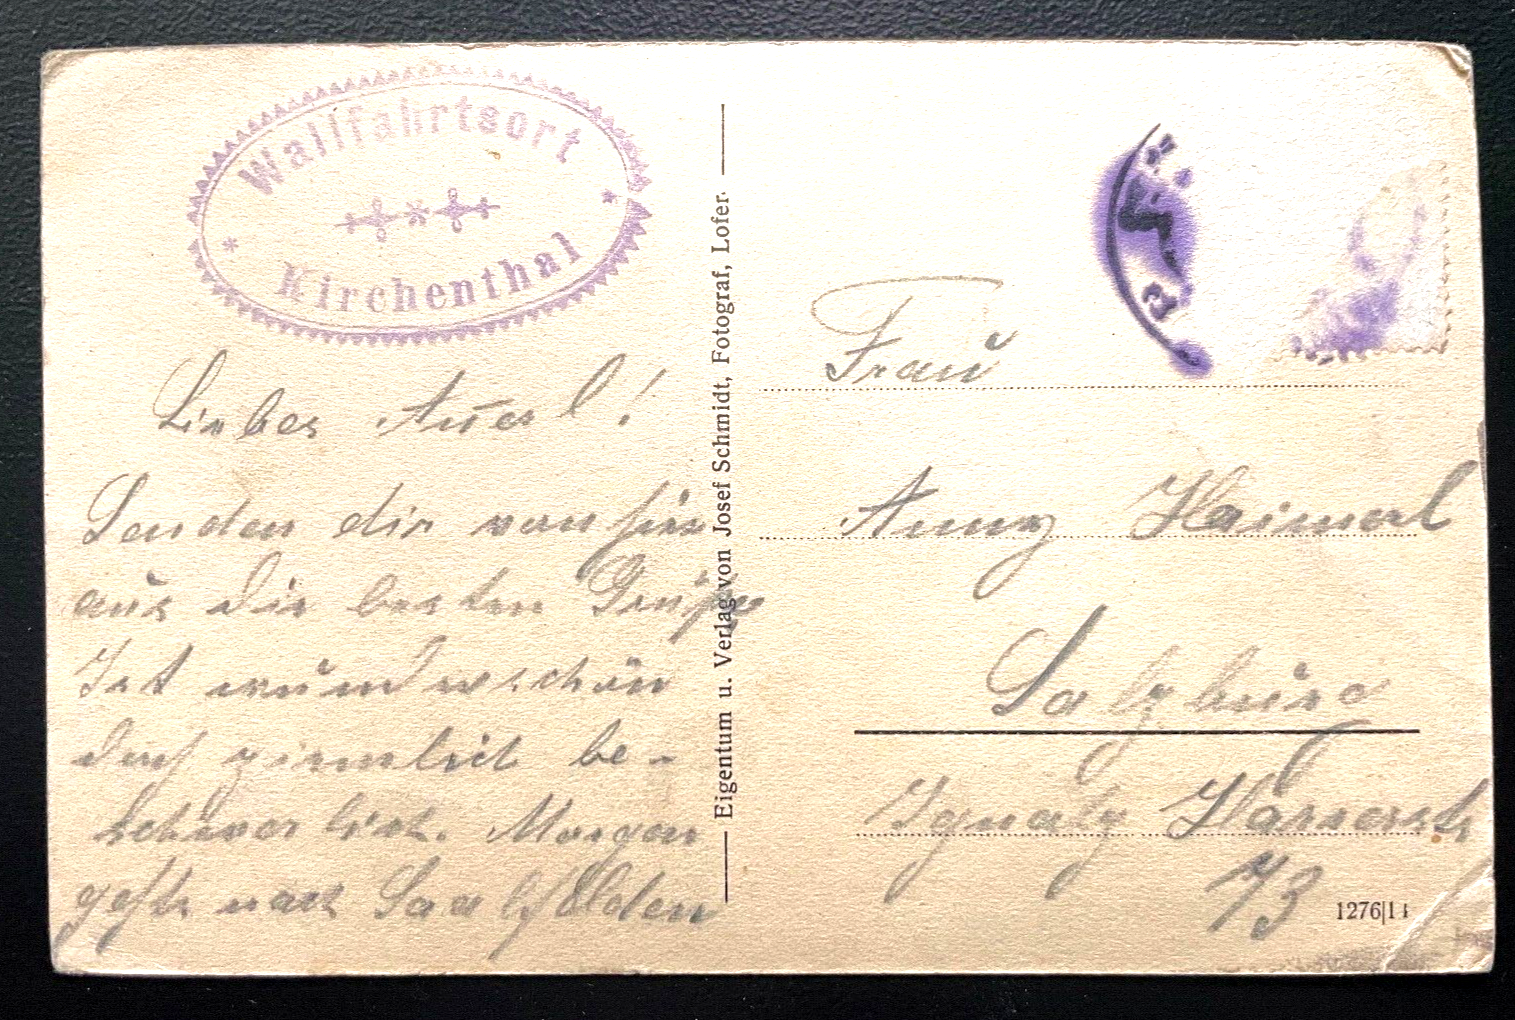 Wallfahrtsort
Kirchenthal
Liebes Annerl!
Senden dir von hier
aus die besten Grüße
Ist wunderschön
doch ziemlich be-
schwerlich. Morgen
gehts nach Saalfelden
Eigentum u. Verlag von Josef Schmidt, Fotograf, Lofer.
Frau
Anny Haimerl
Salzburg
Ignatz Harrerstr
13
1276|14